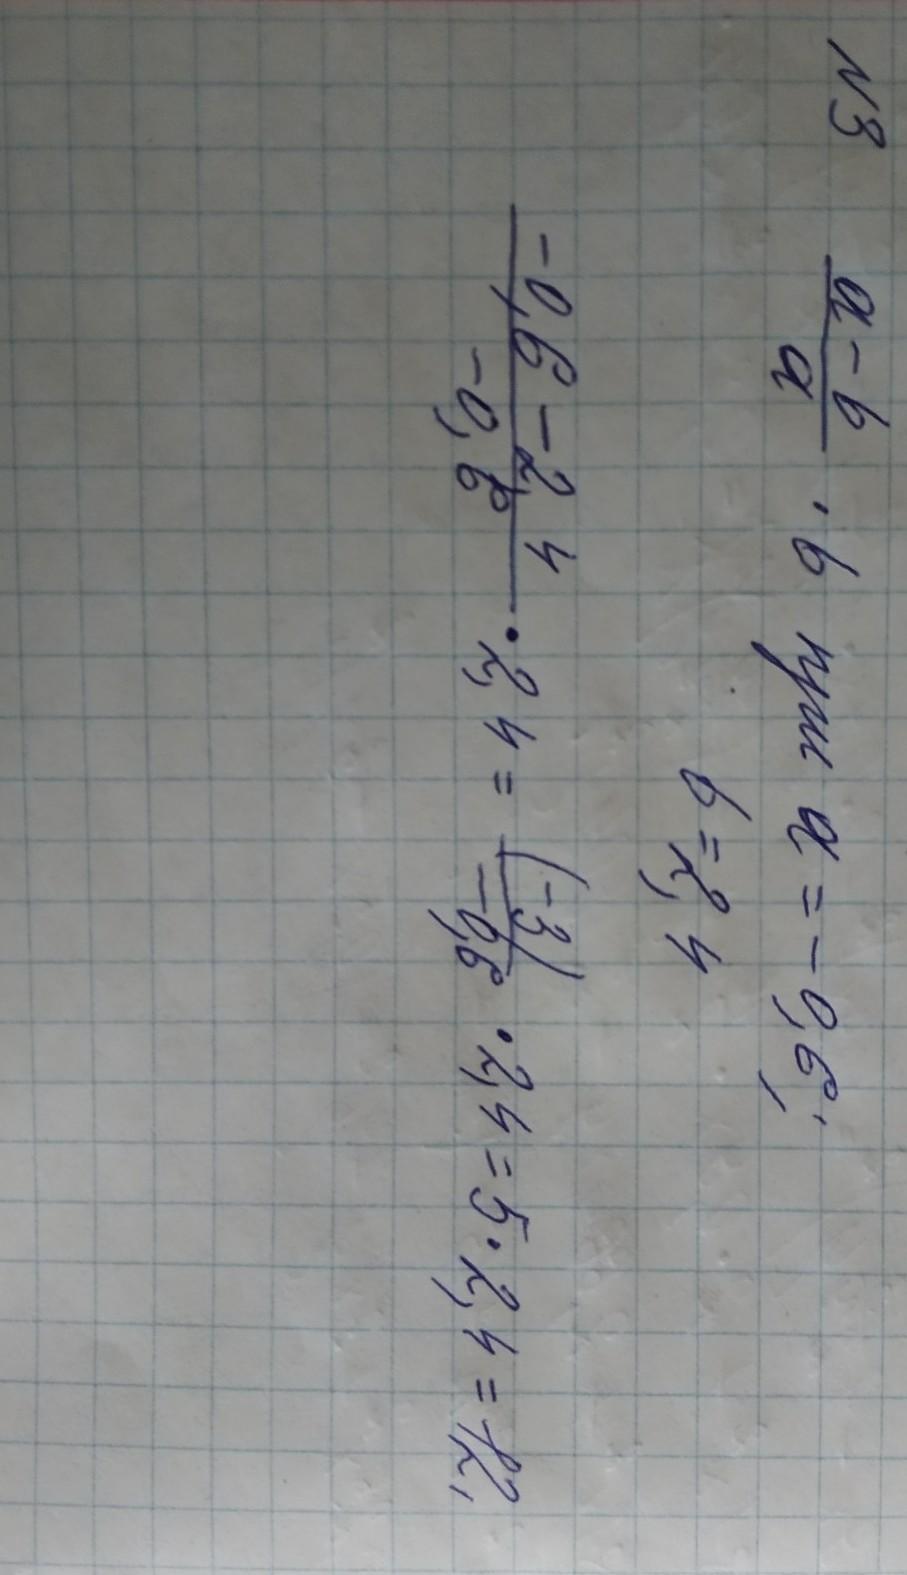 N3 (a-b)/a · b при a = -0,6;
b = 2,4
(-0,6 - 2,4)/(-0,6) · 2,4 = (-3)/(-0,6) · 2,4 = 5 · 2,4 = 12.